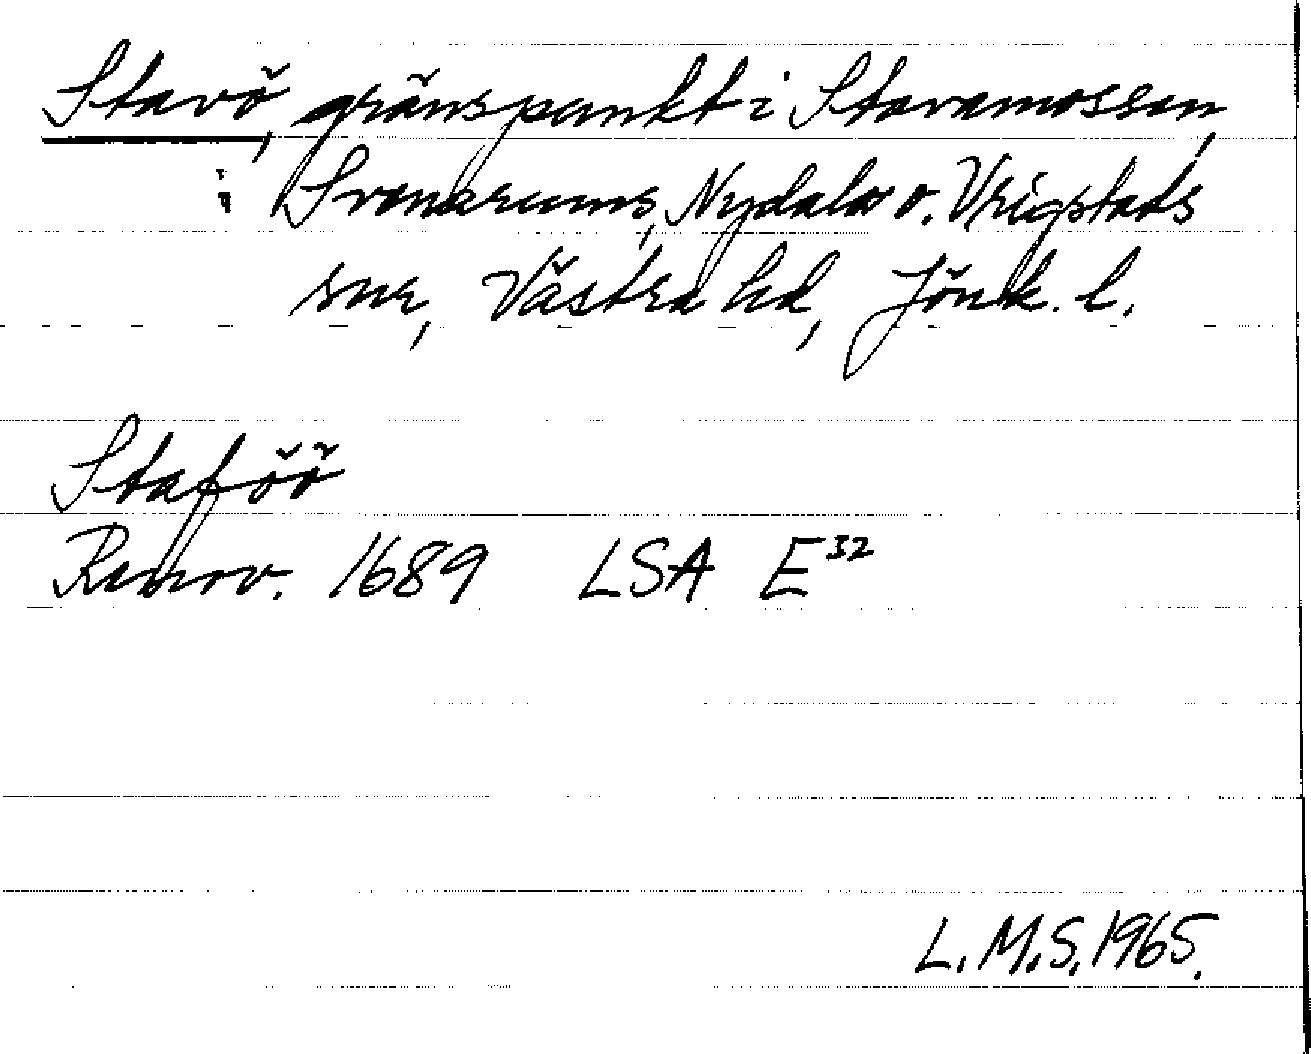 Stavö, gränspunkt i Stavamossen,
i Svenarums, Nydala o. Vrigstads
snr, Västra hd, Jönk. l.
Staföö
Renov. 1689 LSA E³²
L.M.S. 1965.